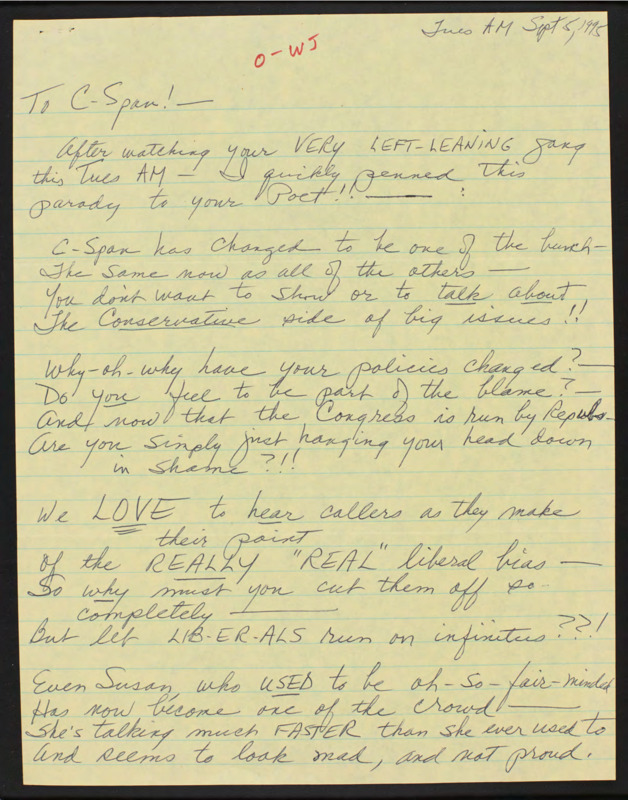 Tues AM Sept 5, 1995
O-WJ
To C-Span! —
After watching your VERY LEFT-LEANING gang
this Tues AM — I quickly penned this
parody to your Poet!! — :
C-Span has changed to be one of the bunch —
The same now as all of the others —
You don't want to show or to talk about
The Conservative side of big issues!!
Why-oh-why have your policies changed? —
Do you feel to be part of the blame? —
And now that the Congress is run by Repubs —
Are you simply just hanging your head down
in shame?!!
We LOVE to hear callers as they make
their point
of the REALLY "REAL" liberal bias —
So why must you cut them off so
completely —
But let LIB-ER-ALS run on infinitus??!
Even Susan, who USED to be oh-so-fair-minded
Has now become one of the crowd —
She's talking much FASTER than she ever used to
And seems to look mad, and not proud.